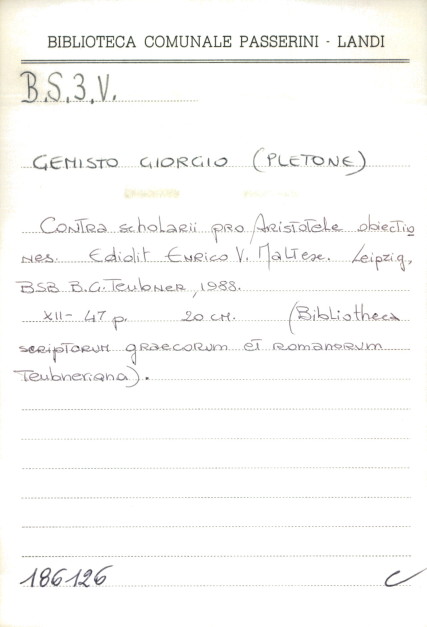 BIBLIOTECA COMUNALE PASSERINI - LANDI
B.S.3.V.
GEMISTO GIORGIO (PLETONE)
CONTRA scholarii PRO ARISTOTELE obiectio
nes. Edidit ENRICO V. MALTESE. Leipzig,
BSB B.G. TEUBNER, 1988.
XII- 47 p. 20 CM. (Bibliotheca
scriptorum graecorum et romanorum
Teubneriana).
186126
C